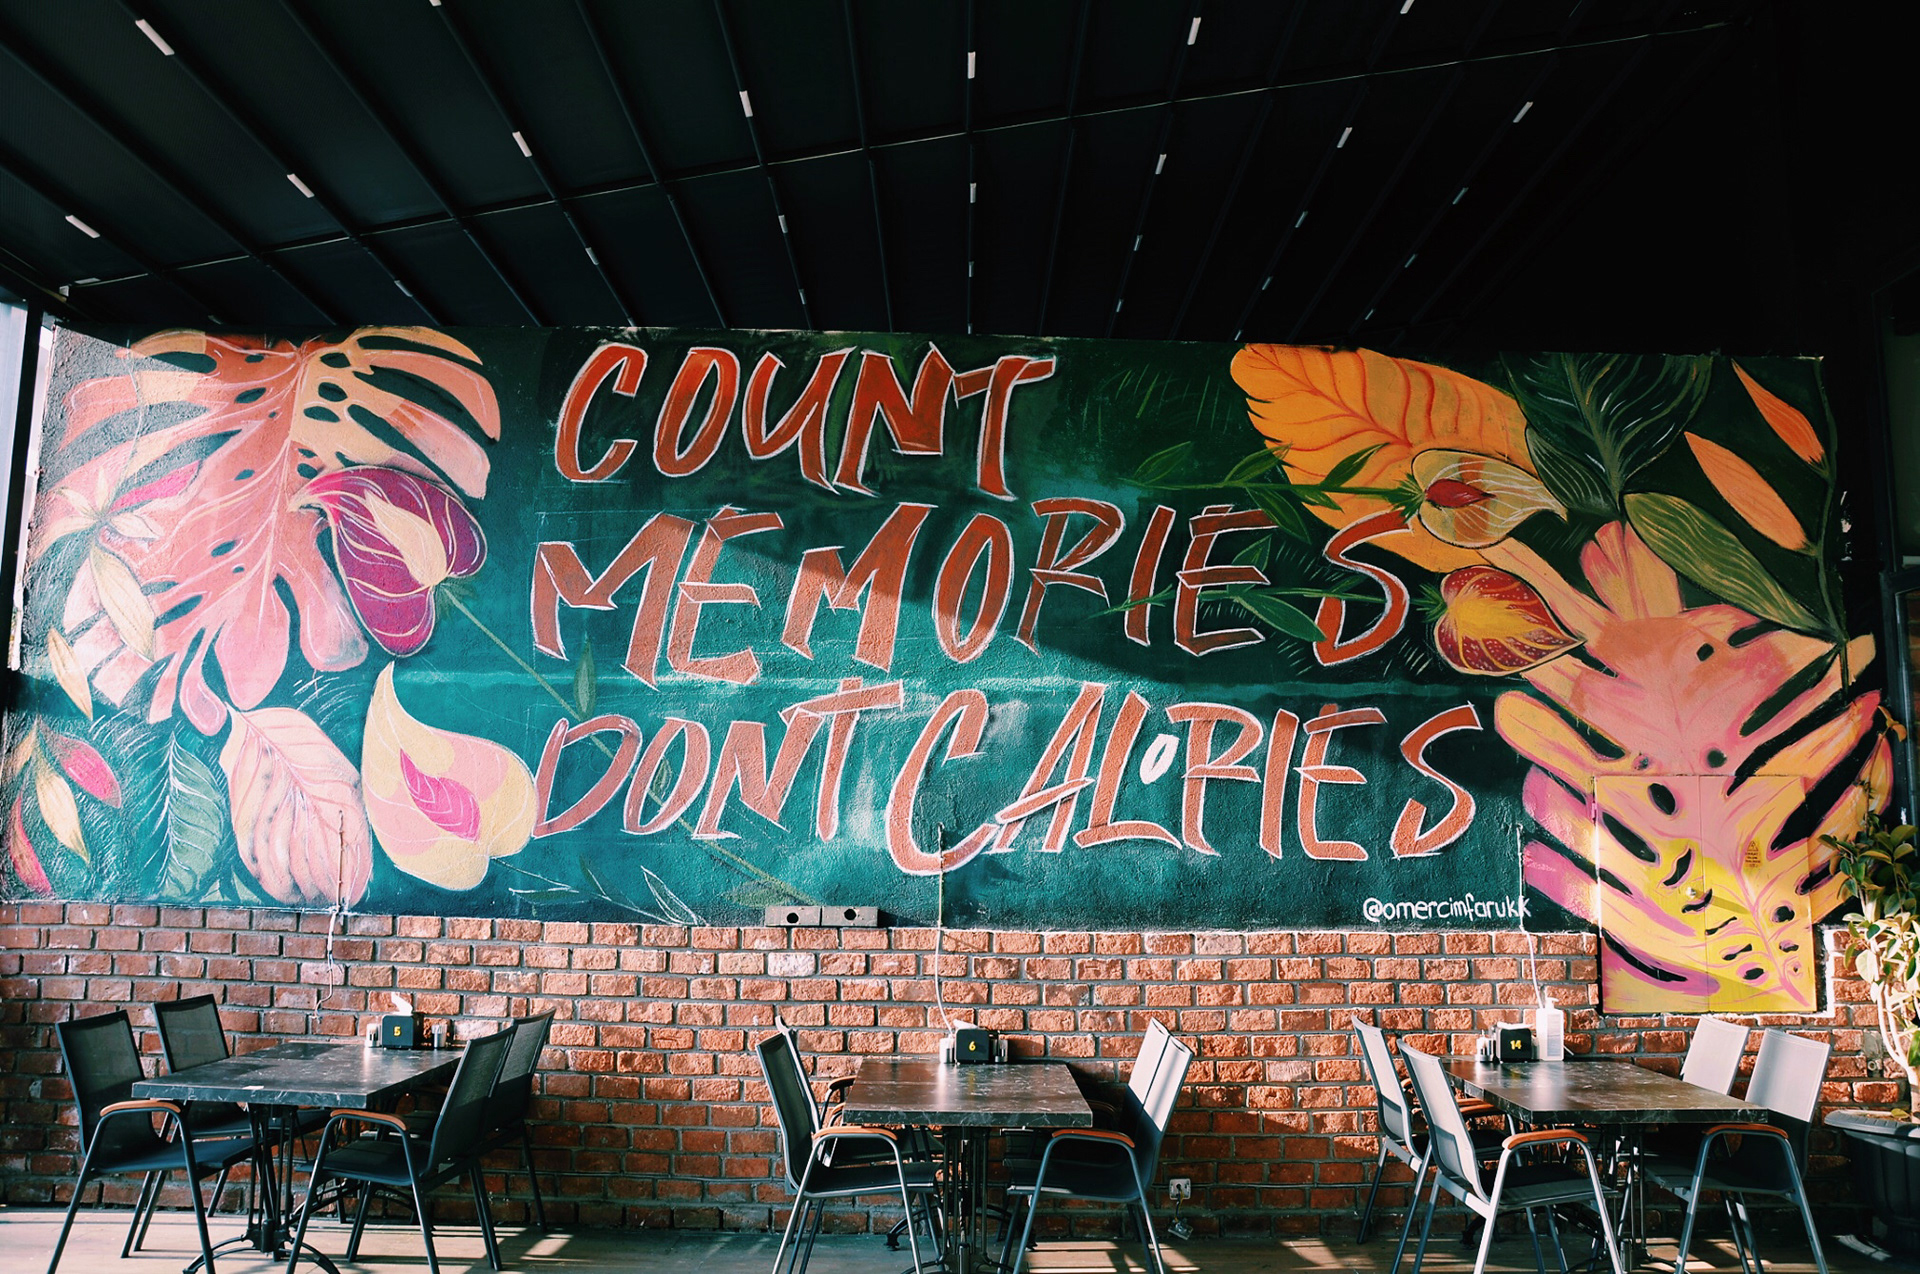 COUNT
MEMORIES
DONT CALORIES
@omercimfarukk
5
6
14